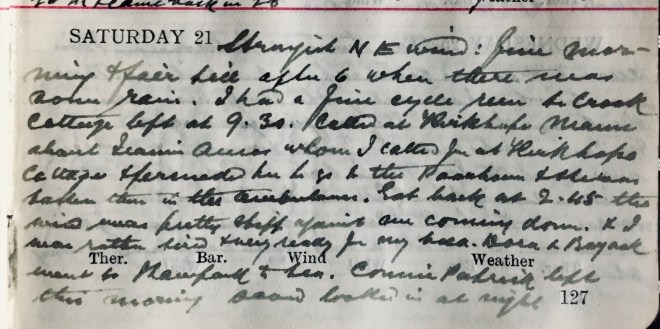 SATURDAY 21 Straight N E wind: fine mor-
ning & fair till after 6 when there was
some rain. I had a fine cycle run to Crook
Cottage left at 9.30. Called at Kirkhope Manse
about whom I called for at Kirkhope
Cottage & her to go to the Poorhouse & she was
taken there in the Ambulance. Got back at 2.45 the
wind was pretty stiff against me coming down. & I
was rather tired & very ready for my tea. Dora &
Ther. Bar. Wind Weather
went to to tea. Connie Patrick left
this morning looked in at night 127